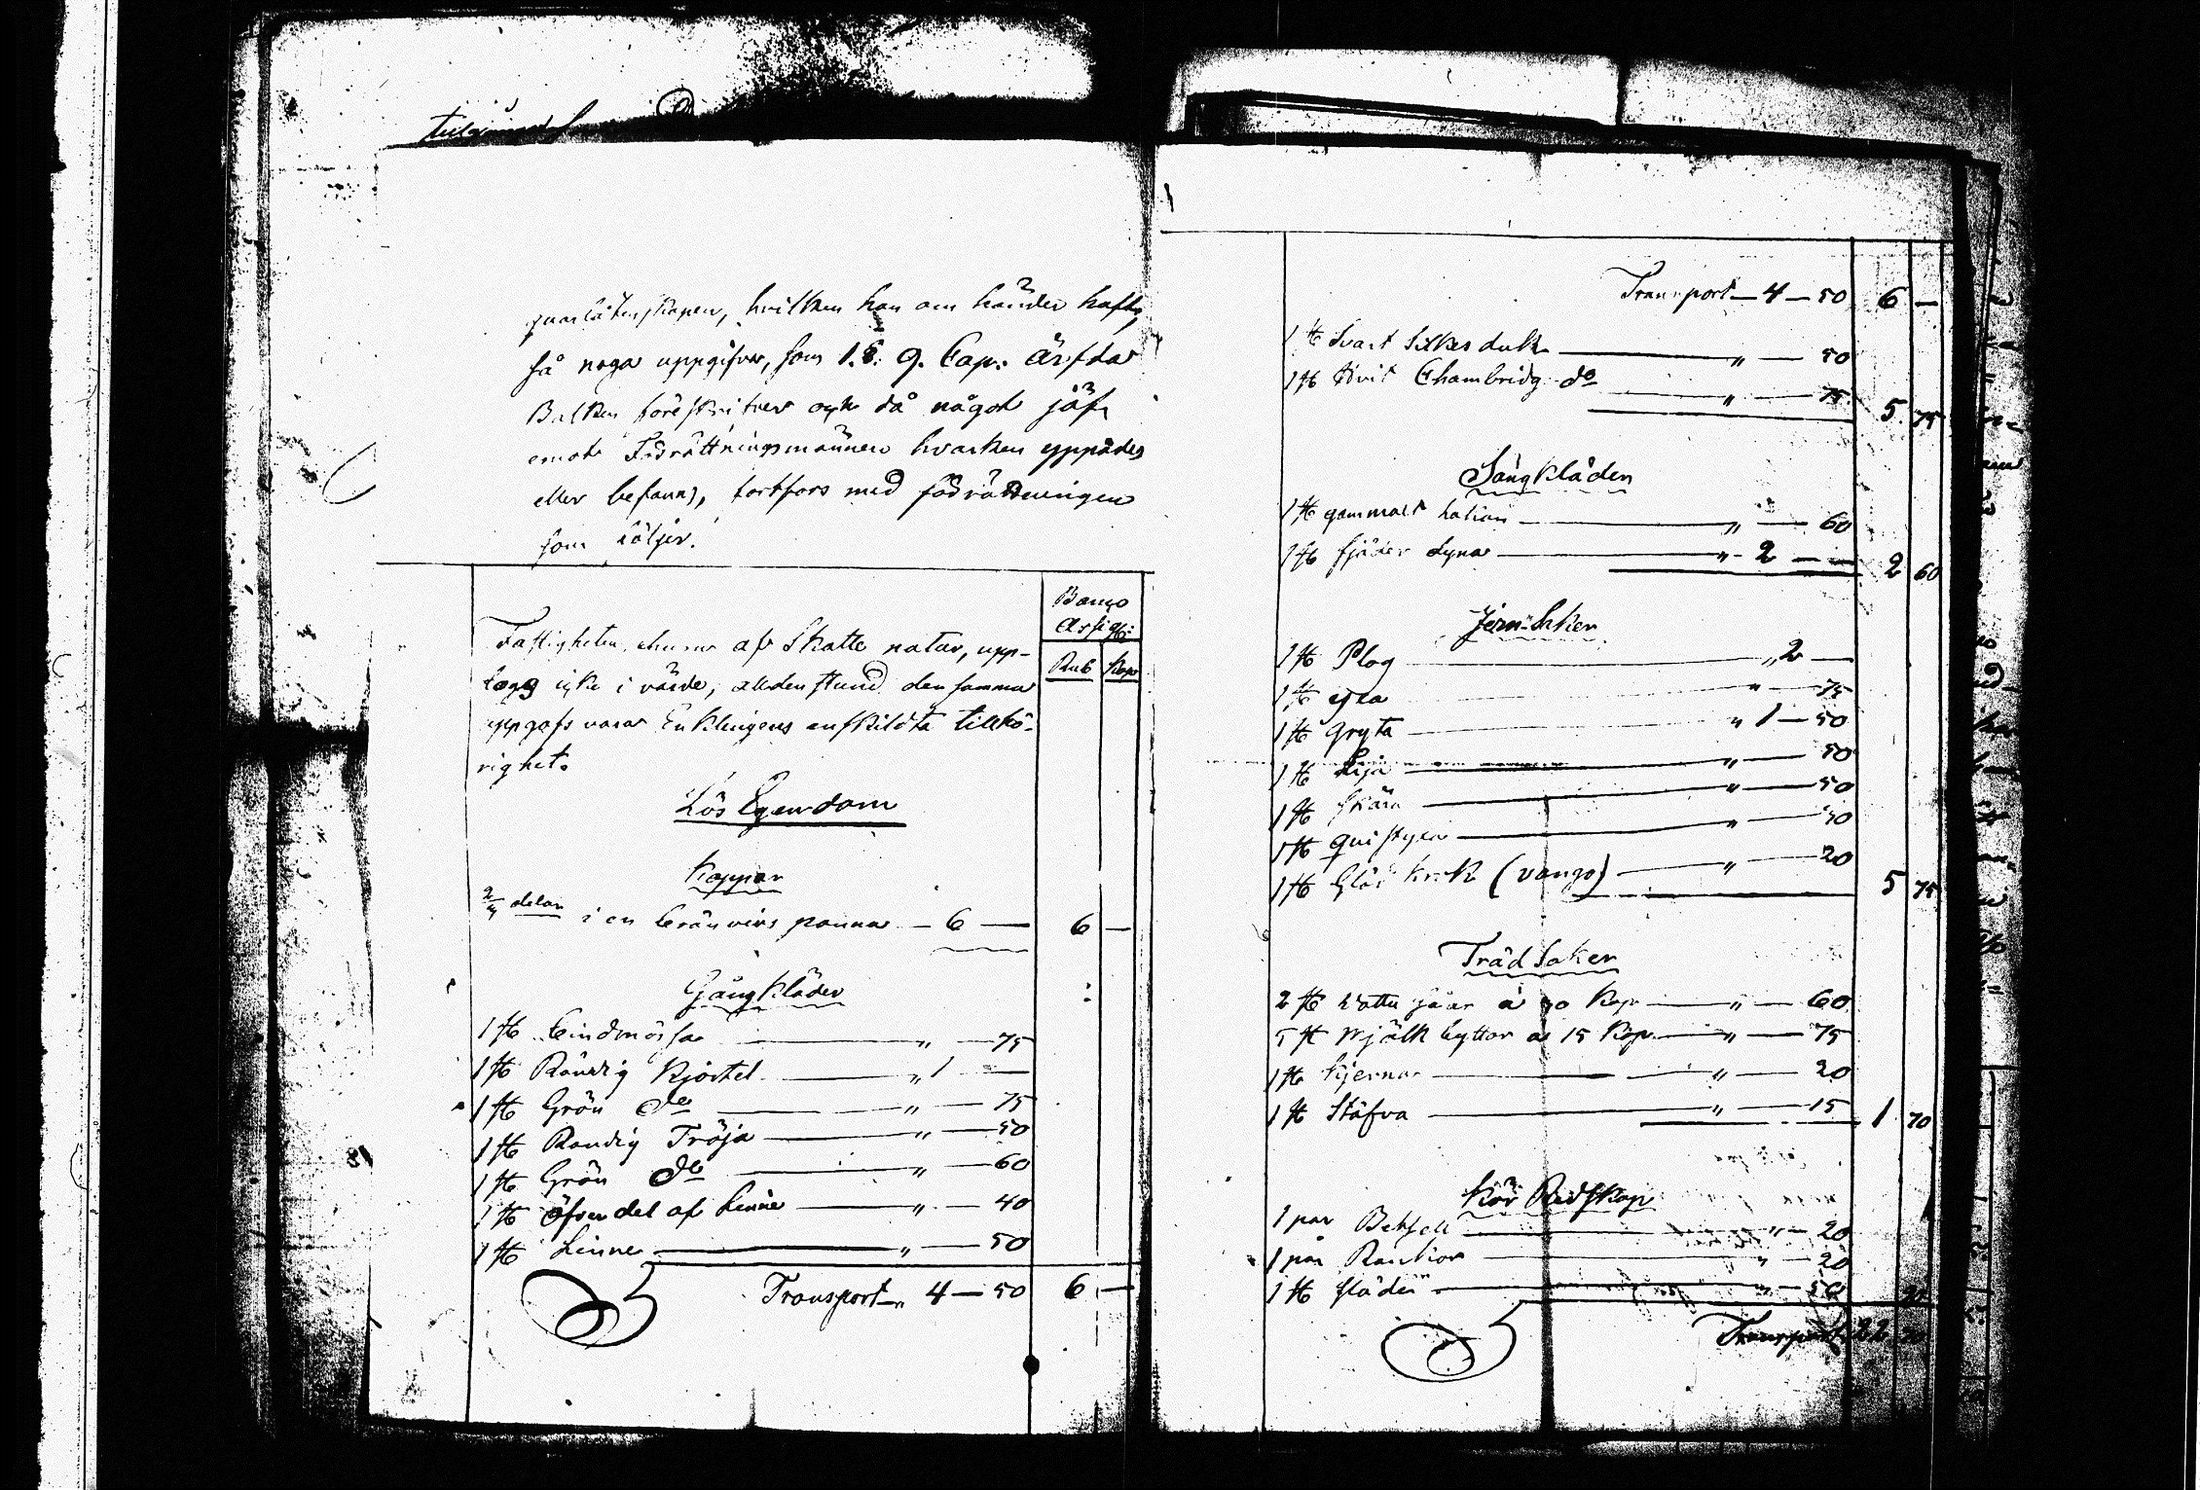 qvarlåtenskapen, hvilken han om händer haft,
så noga uppgifva, som 1. §. 9. Cap. Ärfda
Balken föreskrifver och då något jäf
emot Förrättningsmännen hvarken yppades
eller befanns, fortfors med förrättningen
som följer.
Banco
Assign:
Rub Kop
Fastigheten, af Skatte natur, upp-
togs icke i värde, alldenstund densamma
uppgafs vara Enklingens enskildta tillhö-
righet.
Lös Egendom
Koppar
delar i en bränvins panna — 6 — 6 —
Gångkläder
1 st. bindmössa " — 75
1 st. Randig Kjortel " 1 —
1 st. Grön do " — 75
1 st. Randig Tröja " — 50
1 st. Grön do " — 60
1 st. öfver del af Linne " — 40
1 st. Linne " — 50
Transport 4 — 50 6 —
Transport — 4 — 50 6 —
1 st. Svart Silkes duk " — 50
1 st. Hvit Chambridg do " — 75 5 75
Sängkläder
1 st. gammalt " — 60
1 st. fjäder dyna " 2 — 2 60
Jern Saker
1 st. Plog " 2 —
1 st. yxa " — 75
1 st. Gryta " 1 — 50
1 st. Lija " — 50
1 st. Skära " — 50
1 st. " — 50
1 st. krok (vango) " — 20 5 75
Träd Saker
2 st. vattu såar à 30 Kop " — 60
5 st. Mjölk byttor à 15 Kop " — 75
1 st. Kjerna " — 20
1 st. Stäfva " — 15 1 70
Kör Redskap
1 par Betsell " — 20
1 par Rankior " — 20
1 st. släde " — 50 90
Transport 22 70